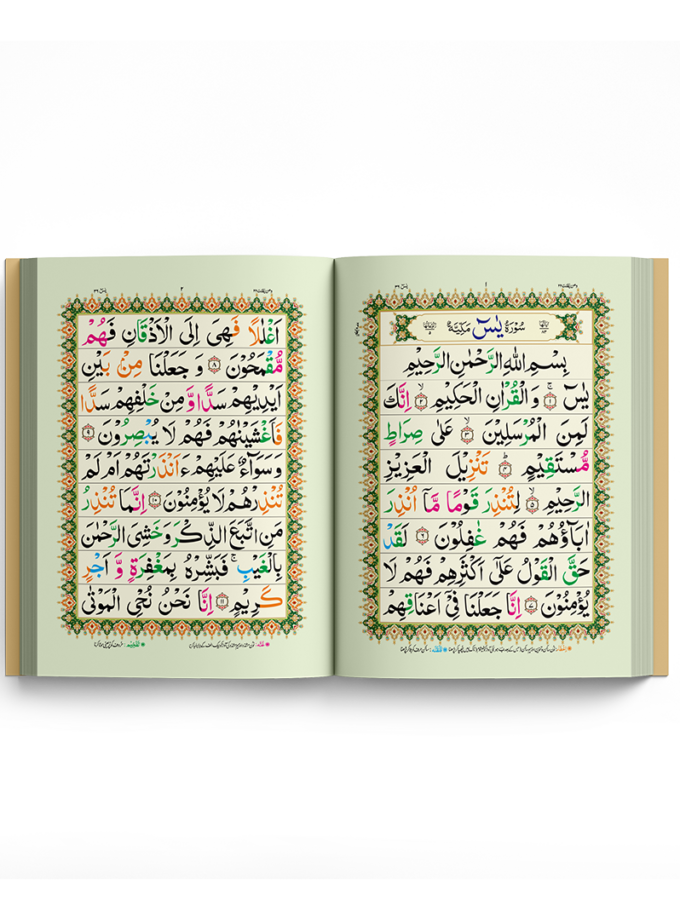 ١
سُوْرَةُ يٰسٓ مَكِّيَّةٌ
بِسْمِ اللّٰهِ الرَّحْمٰنِ الرَّحِيْمِ
يٰسٓ ۚ﴿١﴾ وَالْقُرْاٰنِ الْحَكِيْمِ ۙ﴿٢﴾ اِنَّكَ
لَمِنَ الْمُرْسَلِيْنَ ۙ﴿٣﴾ عَلٰى صِرَاطٍ
مُّسْتَقِيْمٍ ؕ﴿٤﴾ تَنْزِيْلَ الْعَزِيْزِ
الرَّحِيْمِ ۙ﴿٥﴾ لِتُنْذِرَ قَوْمًا مَّاۤ اُنْذِرَ
اٰبَآؤُهُمْ فَهُمْ غٰفِلُوْنَ ﴿٦﴾ لَقَدْ
حَقَّ الْقَوْلُ عَلٰۤى اَكْثَرِهِمْ فَهُمْ لَا
يُؤْمِنُوْنَ ﴿٧﴾ اِنَّا جَعَلْنَا فِيْۤ اَعْنَاقِهِمْ
٢
اَغْلٰلًا فَهِىَ اِلَى الْاَذْقَانِ فَهُمْ
مُّقْمَحُوْنَ ﴿٨﴾ وَ جَعَلْنَا مِنْۢ بَيْنِ
اَيْدِيْهِمْ سَدًّا وَّ مِنْ خَلْفِهِمْ سَدًّا
فَاَغْشَيْنٰهُمْ فَهُمْ لَا يُبْصِرُوْنَ ﴿٩﴾
وَسَوَآءٌ عَلَيْهِمْ ءَاَنْذَرْتَهُمْ اَمْ لَمْ
تُنْذِرْهُمْ لَا يُؤْمِنُوْنَ ﴿١٠﴾ اِنَّمَا تُنْذِرُ
مَنِ اتَّبَعَ الذِّكْرَ وَخَشِىَ الرَّحْمٰنَ
بِالْغَيْبِ ۚ فَبَشِّرْهُ بِمَغْفِرَةٍ وَّ اَجْرٍ
كَرِيْمٍ ﴿١١﴾ اِنَّا نَحْنُ نُحْىِ الْمَوْتٰى